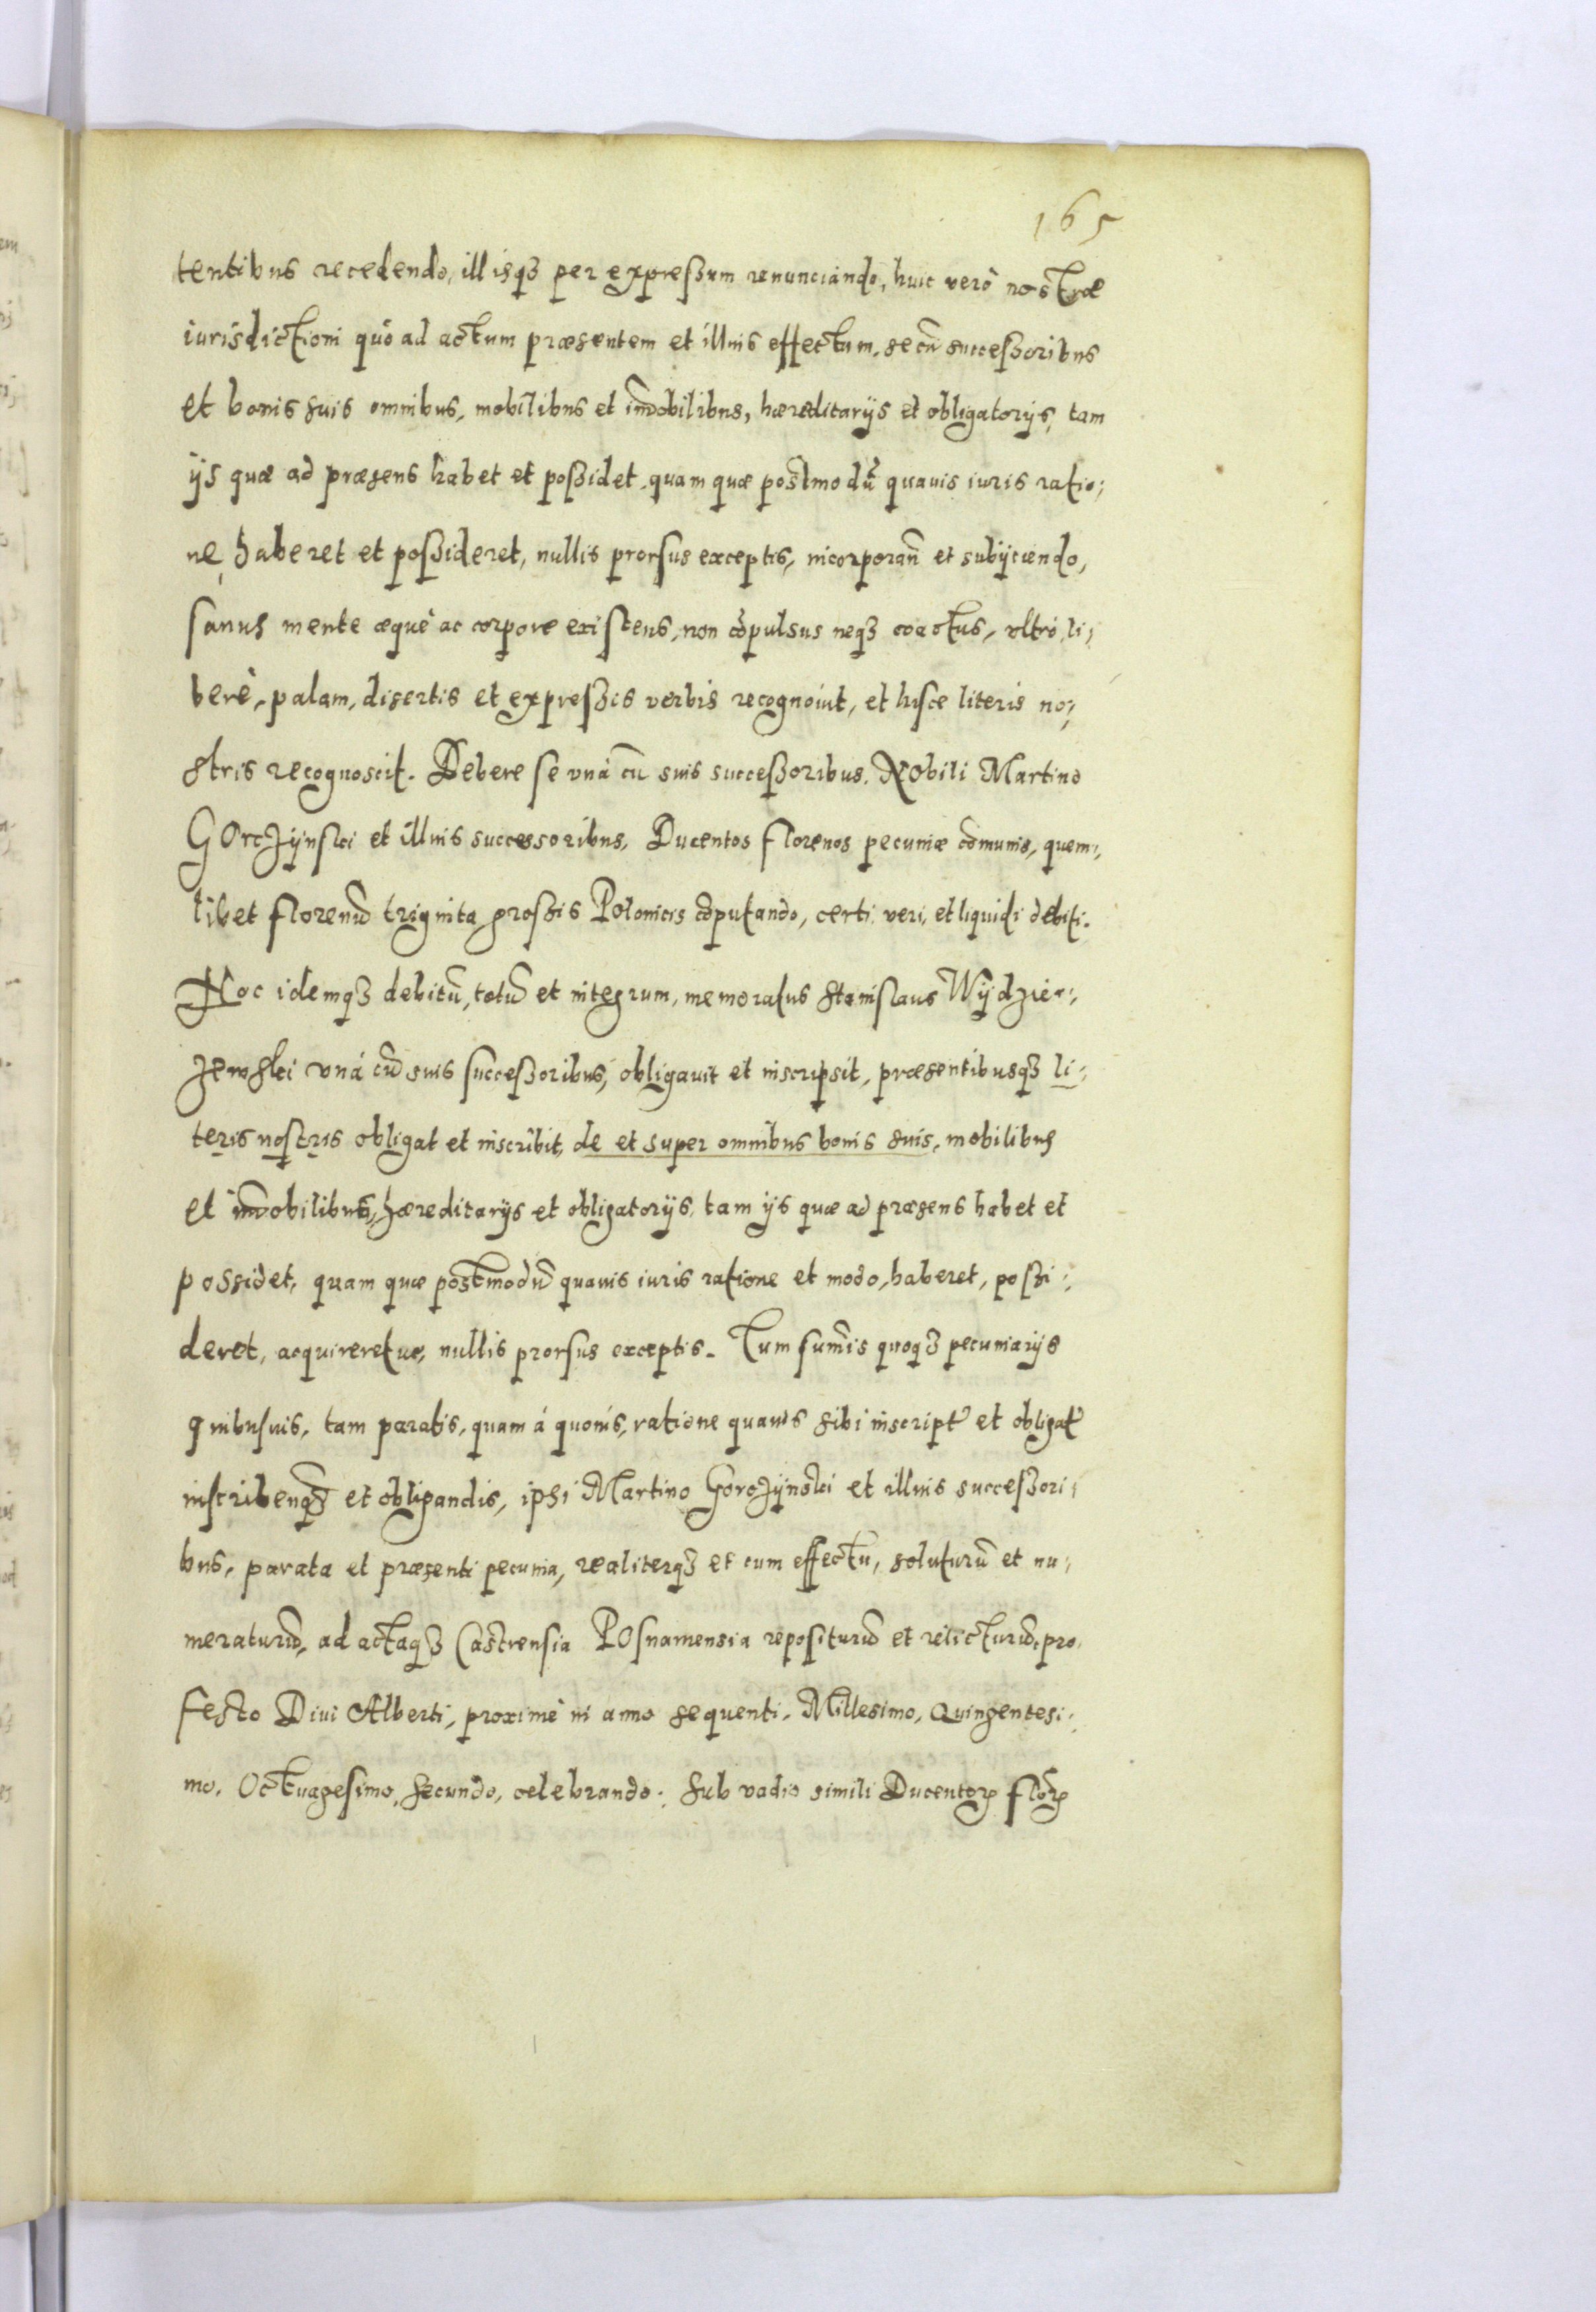 165
tentibus recedendo, illisqꝫ per expreßum renunciando, huic verò nostræ
iurisdictioni quò ad actum præsentem et illius effectum, se cũ succeßoribus
et bonis suis omnibus, mobilibus et im̃obilibus, hæreditarijs et obligatorijs, tam
ijs quæ ad præsens habet et poßidet, quam quæ postmodũ quauis iuris ratio;
ne, haberet et poßideret, nullis prorsus exceptis, incorporañ et subijciendo,
sanus mente æquè ac corpore existens, non cõpulsus neqꝫ coactus, vltrò, li;
berè, palam, disertis et expreßis verbis recognouit, et hisce literis no;
stris recognoscit. Debere se vnà cũ suis succeßoribus. Nobili Martino
GOrczÿnski et illius successoribus, Ducentos florenos pecuniæ cõmunis, quem;
libet florenũ triginta großis Polonicis cõputando, certi, veri, et liquidi debiti.
Hoc idemqꝫ debitũ, totũ et integrum, memoratus Stanislaus Wÿdzier;
zewski vnà cũ suis succeßoribus, obligauit et inscripsit, præsentibusqꝫ li;
teris nostris obligat et inscribit, de et super omnibus bonis suis, mobilibus
et im̃obilibus, hæreditarijs et obligatorijs, tam ijs quæ ad præsens habet et
possidet, quam quæ postmodũ quauis iuris ratione et modo, haberet, poßi;
deret, acquireretue, nullis prorsus exceptis. Tum sum̃is quoqꝫ pecuniarijs
quibusuis, tam paratis, quam à quouis, ratione quauis sibi inscript̃ et obligat̃
inscribenqꝫ et obligandis, ipsi Martino Gorczÿnski et illius succeßori;
bus, parata et præsenti pecunia, realiterqꝫ et cum effectu, soluturũ et nu;
meraturũ, ad actaqꝫ Castrensia POsnaniensia repositurũ et relicturũ, pro
festo Diui Alberti, proximè in anno sequenti, Millesimo, Quingentesi;
mo, Octuagesimo, secundo, celebrando. Sub vadio simili Ducentoꝝ floꝝ